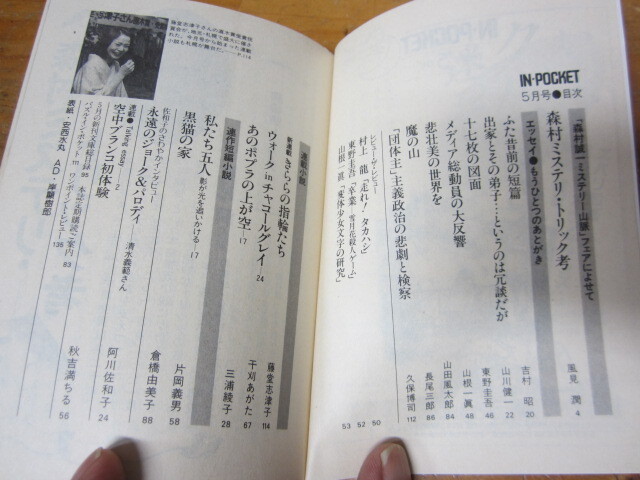 IN★POCKET
5月号●目次
「森村誠一ミステリー山脈」フェアによせて
森村ミステリ・トリック考 風見 潤 4
エッセイ●もうひとつのあとがき
ふた昔前の短篇 吉村 昭 20
出家とその弟子…というのは冗談だが 山川健一 22
十七枚の図面 東野圭吾 48
メディア総動員の大反響 山根一眞 48
悲壮美の世界を 山田風太郎 84
魔の山 長尾三郎 86
「団体主」義政治の悲劇と検察 久保博司 112
レビュー・レビュー
村上 龍『走れ!タカハシ』 50
東野圭吾『卒業―雪月花殺人ゲーム』 52
山根一眞『変体少女文字の研究』 53
連載小説
新連載●きららの指輪たち 藤堂志津子 114
ウォーク in チャコールグレイ…24 干刈あがた 67
あのポプラの上が空…17 三浦綾子 28
連作短編小説
私たち五人 影が光を追いかける…17 片岡義男 58
黒猫の家 倉橋由美子 88
佐和子のさわやかインタビュー
永遠のジョーク&パロディ 清水義範さん 阿川佐和子 24
連載●Talking essay…2
空中ブランコ初体験 秋吉満ちる 56
5月の新刊文庫総目録 95 本誌定期購読ご案内 83
パズル・イン・ポケット 111 ワン・ポイント・レビュー 136
表紙・安西水丸 AD・岸顯樹郎